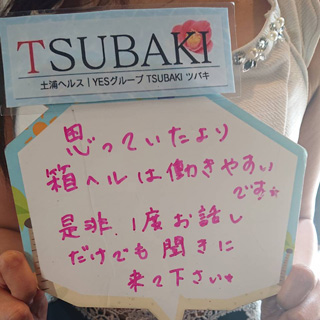 TSUBAKI
土浦ヘルス｜YESグループ TSUBAKI ツバキ
思っていたより
箱ヘルは働きやすい
です☆
是非、1度お話し
だけでも聞きに
来て下さい♥